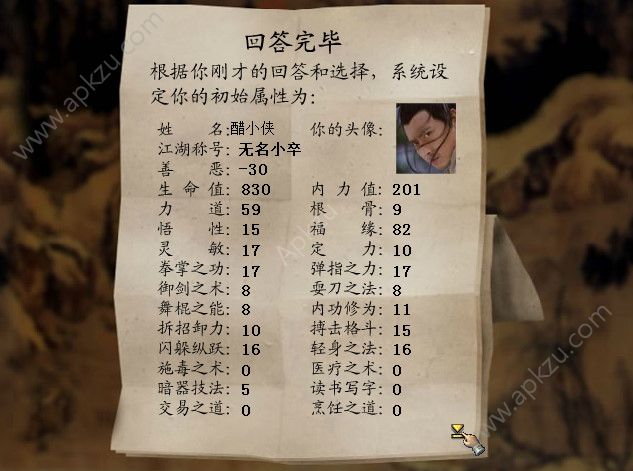 回答完毕
根据你刚才的回答和选择，系统设
定你的初始属性为：
姓 名:醋小侠 你的头像:
江湖称号: 无名小卒
善 恶: -30
生 命 值: 830 内 力 值: 201
力 道: 59 根 骨: 9
悟 性: 15 福 缘: 82
灵 敏: 17 定 力: 10
拳掌之功: 17 弹指之力: 17
御剑之术: 8 耍刀之法: 8
舞棍之能: 8 内功修为: 11
拆招卸力: 10 搏击格斗: 15
闪躲纵跃: 16 轻身之法: 16
施毒之术: 0 医疗之术: 0
暗器技法: 5 读书写字: 0
交易之道: 0 烹饪之道: 0
www.apkzu.com
www.apkzu.com
Apkzu.com